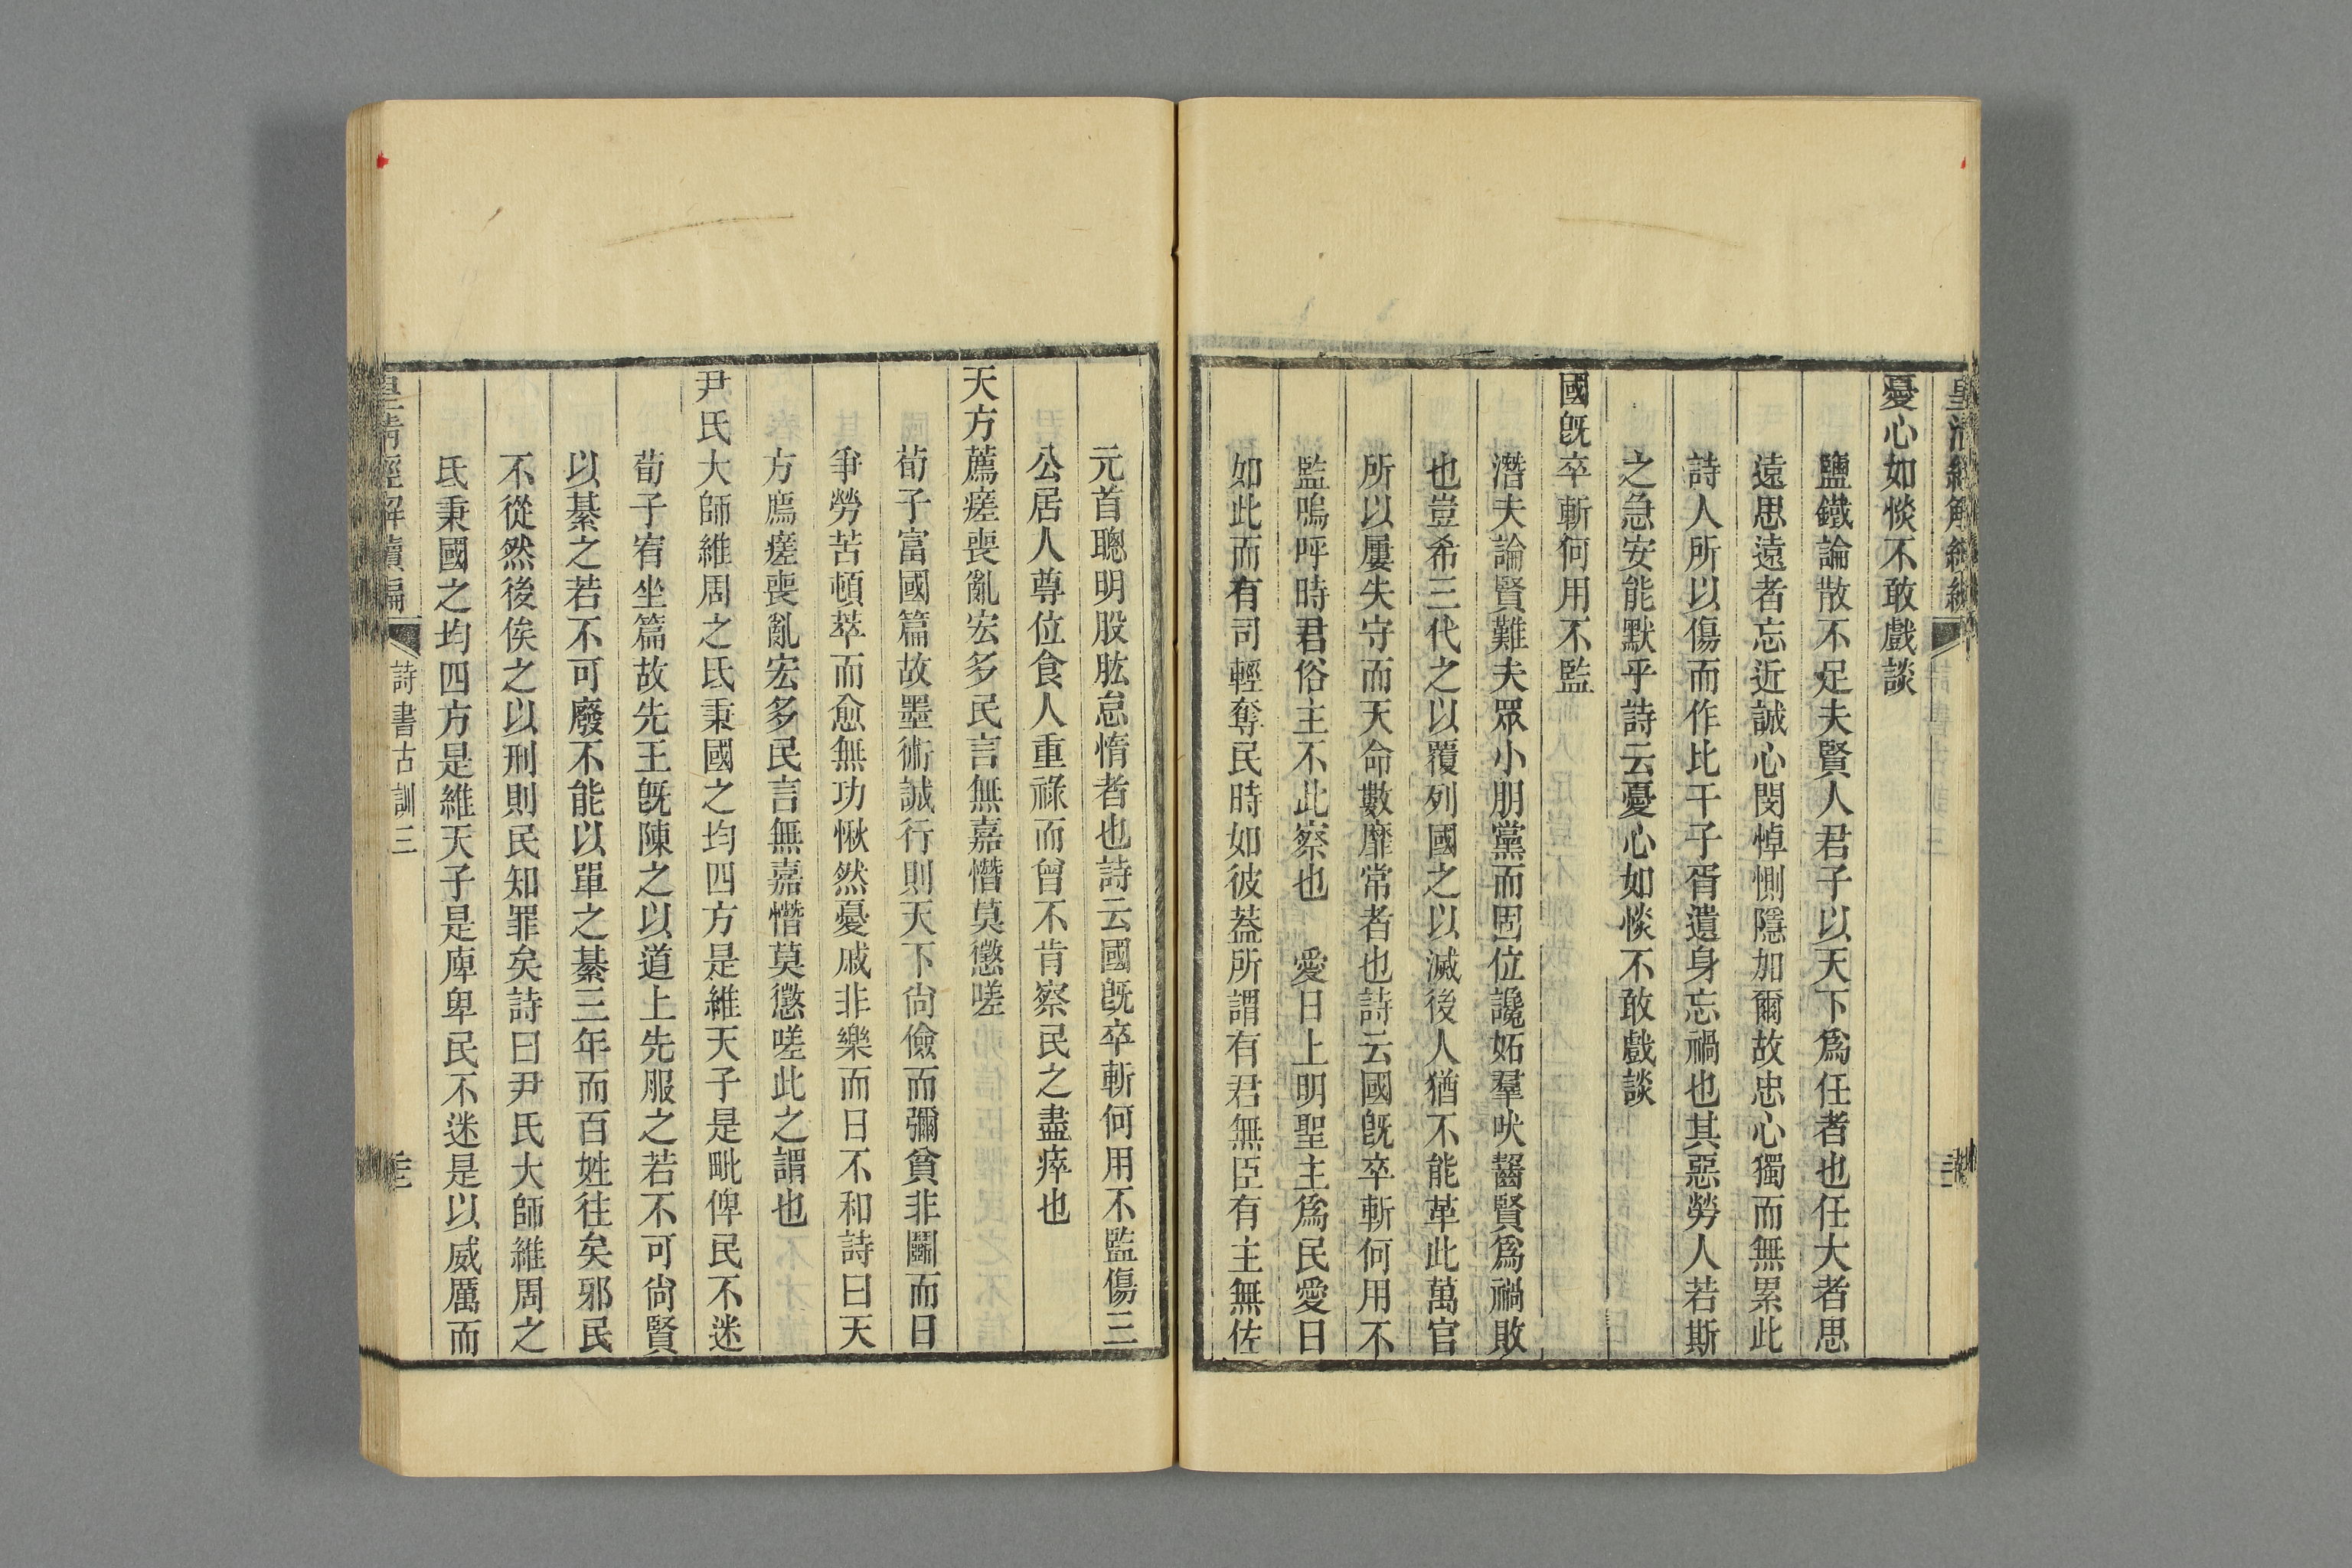 憂心如惔不敢戲談
鹽鐵論散不足夫賢人君子以天下爲任者也任大者思
遠思遠者忘近誠心閔悼惻隱加爾故忠心獨而無累此
詩人所以傷而作比干子胥遺身忘禍也其惡勞人若斯
之急安能默乎詩云憂心如惔不敢戲談
國旣卒斬何用不監
潛夫論賢難夫眾小朋黨而固位讒妬羣吠齧賢爲禍敗
也豈希三代之以覆列國之以滅後人猶不能革此萬官
所以屢失守而天命數靡常者也詩云國旣卒斬何用不
監嗚呼時君俗主不此察也　愛日上明聖主爲民愛日
如此而有司輕奪民時如彼蓋所謂有君無臣有主無佐
元首聰明股肱怠惰者也詩云國旣卒斬何用不監傷三
公居人尊位食人重祿而曾不肯察民之盡瘁也
天方薦瘥喪亂宏多民言無嘉憯莫懲嗟
荀子富國篇故墨術誠行則天下尙儉而彌貧非鬭而日
爭勞苦頓萃而愈無功愀然憂戚非樂而日不和詩曰天
方薦瘥喪亂宏多民言無嘉憯莫懲嗟此之謂也
尹氏大師維周之氐秉國之均四方是維天子是毗俾民不迷
荀子宥坐篇故先王旣陳之以道上先服之若不可尙賢
以綦之若不可廢不能以單之綦三年而百姓往矣邪民
不從然後俟之以刑則民知罪矣詩曰尹氏大師維周之
氐秉國之均四方是維天子是庳卑民不迷是以威厲而
皇清經解續編
詩書古訓三